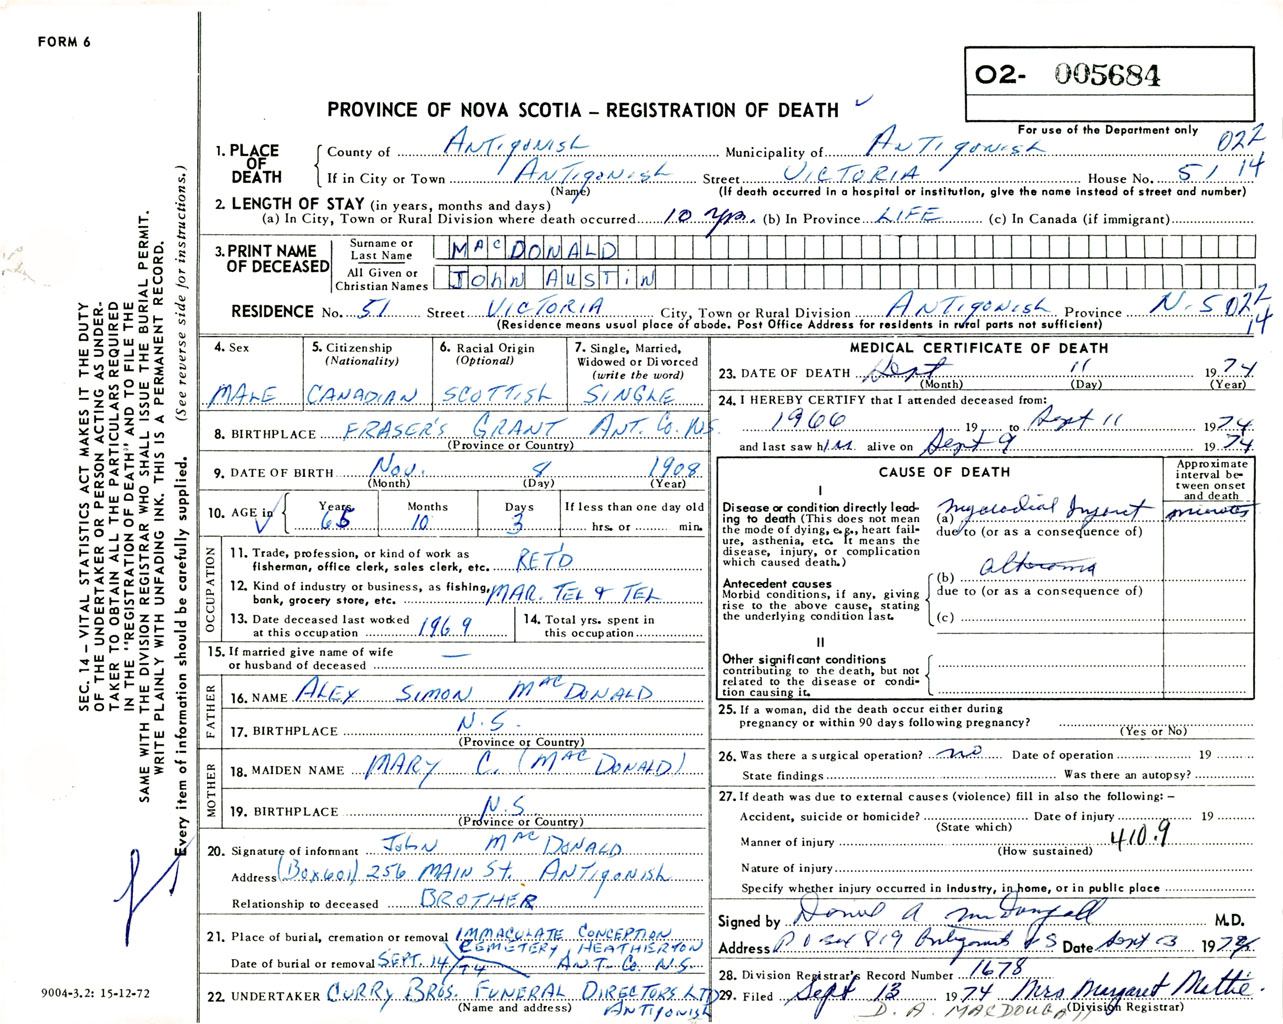 FORM 6
O2- 005684
PROVINCE OF NOVA SCOTIA – REGISTRATION OF DEATH ✓
For use of the Department only
022
14
1. PLACE OF DEATH
County of Antigonish Municipality of Antigonish
If in City or Town Antigonish Street Victoria House No. 51
(Name) (If death occurred in a hospital or institution, give the name instead of street and number)
2. LENGTH OF STAY (in years, months and days)
(a) In City, Town or Rural Division where death occurred 10 yrs. (b) In Province LIFE (c) In Canada (if immigrant)
3. PRINT NAME OF DECEASED
Surname or Last Name MacDONALD
All Given or Christian Names John AUSTIN
RESIDENCE No. 51 Street VICTORIA City, Town or Rural Division Antigonish Province N.S 022
14
(Residence means usual place of abode. Post Office Address for residents in rural parts not sufficient)
4. Sex
MALE
5. Citizenship
(Nationality)
CANADIAN
6. Racial Origin
(Optional)
SCOTTISH
7. Single, Married,
Widowed or Divorced
(write the word)
SINGLE
8. BIRTHPLACE FRASER'S GRANT ANT. Co. N.S.
(Province or Country)
9. DATE OF BIRTH Nov. 8 1908
(Month) (Day) (Year)
10. AGE in
Years Months Days If less than one day old
65 10 3 hrs. or min.
OCCUPATION
11. Trade, profession, or kind of work as
fisherman, office clerk, sales clerk, etc. RET'D
12. Kind of industry or business, as fishing,
bank, grocery store, etc. MAR. TEL & TEL
13. Date deceased last worked
at this occupation 1969
14. Total yrs. spent in
this occupation
15. If married give name of wife
or husband of deceased —
FATHER
16. NAME ALEX SIMON MacDONALD
17. BIRTHPLACE N.S.
(Province or Country)
MOTHER
18. MAIDEN NAME MARY C. (MacDONALD)
19. BIRTHPLACE N.S
(Province or Country)
20. Signature of informant John MacDONALD
Address (Box 601) 256 MAIN St. Antigonish
Relationship to deceased BROTHER
21. Place of burial, cremation or removal IMMACULATE CONCEPTION
CEMETERY HEATHERTON
Date of burial or removal SEPT. 14/74 ANT. Co. N.S.
22. UNDERTAKER CURRY BROS. FUNERAL DIRECTORS LTD
(Name and address) ANTIGONISH
MEDICAL CERTIFICATE OF DEATH
23. DATE OF DEATH Sept 11 1974
(Month) (Day) (Year)
24. I HEREBY CERTIFY that I attended deceased from:
1966 19 to Sept 11 1974
and last saw him alive on Sept 9 1974
CAUSE OF DEATH
Approximate
interval be-
tween onset
and death
I
Disease or condition directly lead-
ing to death (This does not mean
the mode of dying, e.g., heart fail-
ure, asthenia, etc. It means the
disease, injury, or complication
which caused death.)
(a) minutes
due to (or as a consequence of)
Antecedent causes
Morbid conditions, if any, giving
rise to the above cause, stating
the underlying condition last.
(b) Atheroma
due to (or as a consequence of)
(c)
II
Other significant conditions
contributing to the death, but not
related to the disease or condi-
tion causing it.
25. If a woman, did the death occur either during
pregnancy or within 90 days following pregnancy?
(Yes or No)
26. Was there a surgical operation? no Date of operation 19
State findings Was there an autopsy?
27. If death was due to external causes (violence) fill in also the following: –
Accident, suicide or homicide? Date of injury 19
(State which)
Manner of injury 410.9
(How sustained)
Nature of injury
Specify whether injury occurred in Industry, in home, or in public place
Signed by Daniel A McDougall M.D.
Address P O Box 819 Antigonish N S Date Sept 13 1974
28. Division Registrar's Record Number 1678
29. Filed Sept 13 1974 Mrs Margaret Mattie.
D. A. MACDOUGALL (Division Registrar)
SEC. 14 – VITAL STATISTICS ACT MAKES IT THE DUTY
OF THE UNDERTAKER OR PERSON ACTING AS UNDER-
TAKER TO OBTAIN ALL THE PARTICULARS REQUIRED
IN THE "REGISTRATION OF DEATH" AND TO FILE THE
SAME WITH THE DIVISION REGISTRAR WHO SHALL ISSUE THE BURIAL PERMIT.
WRITE PLAINLY WITH UNFADING INK. THIS IS A PERMANENT RECORD.
Every item of information should be carefully supplied. (See reverse side for instructions.)
9004-3.2: 15-12-72